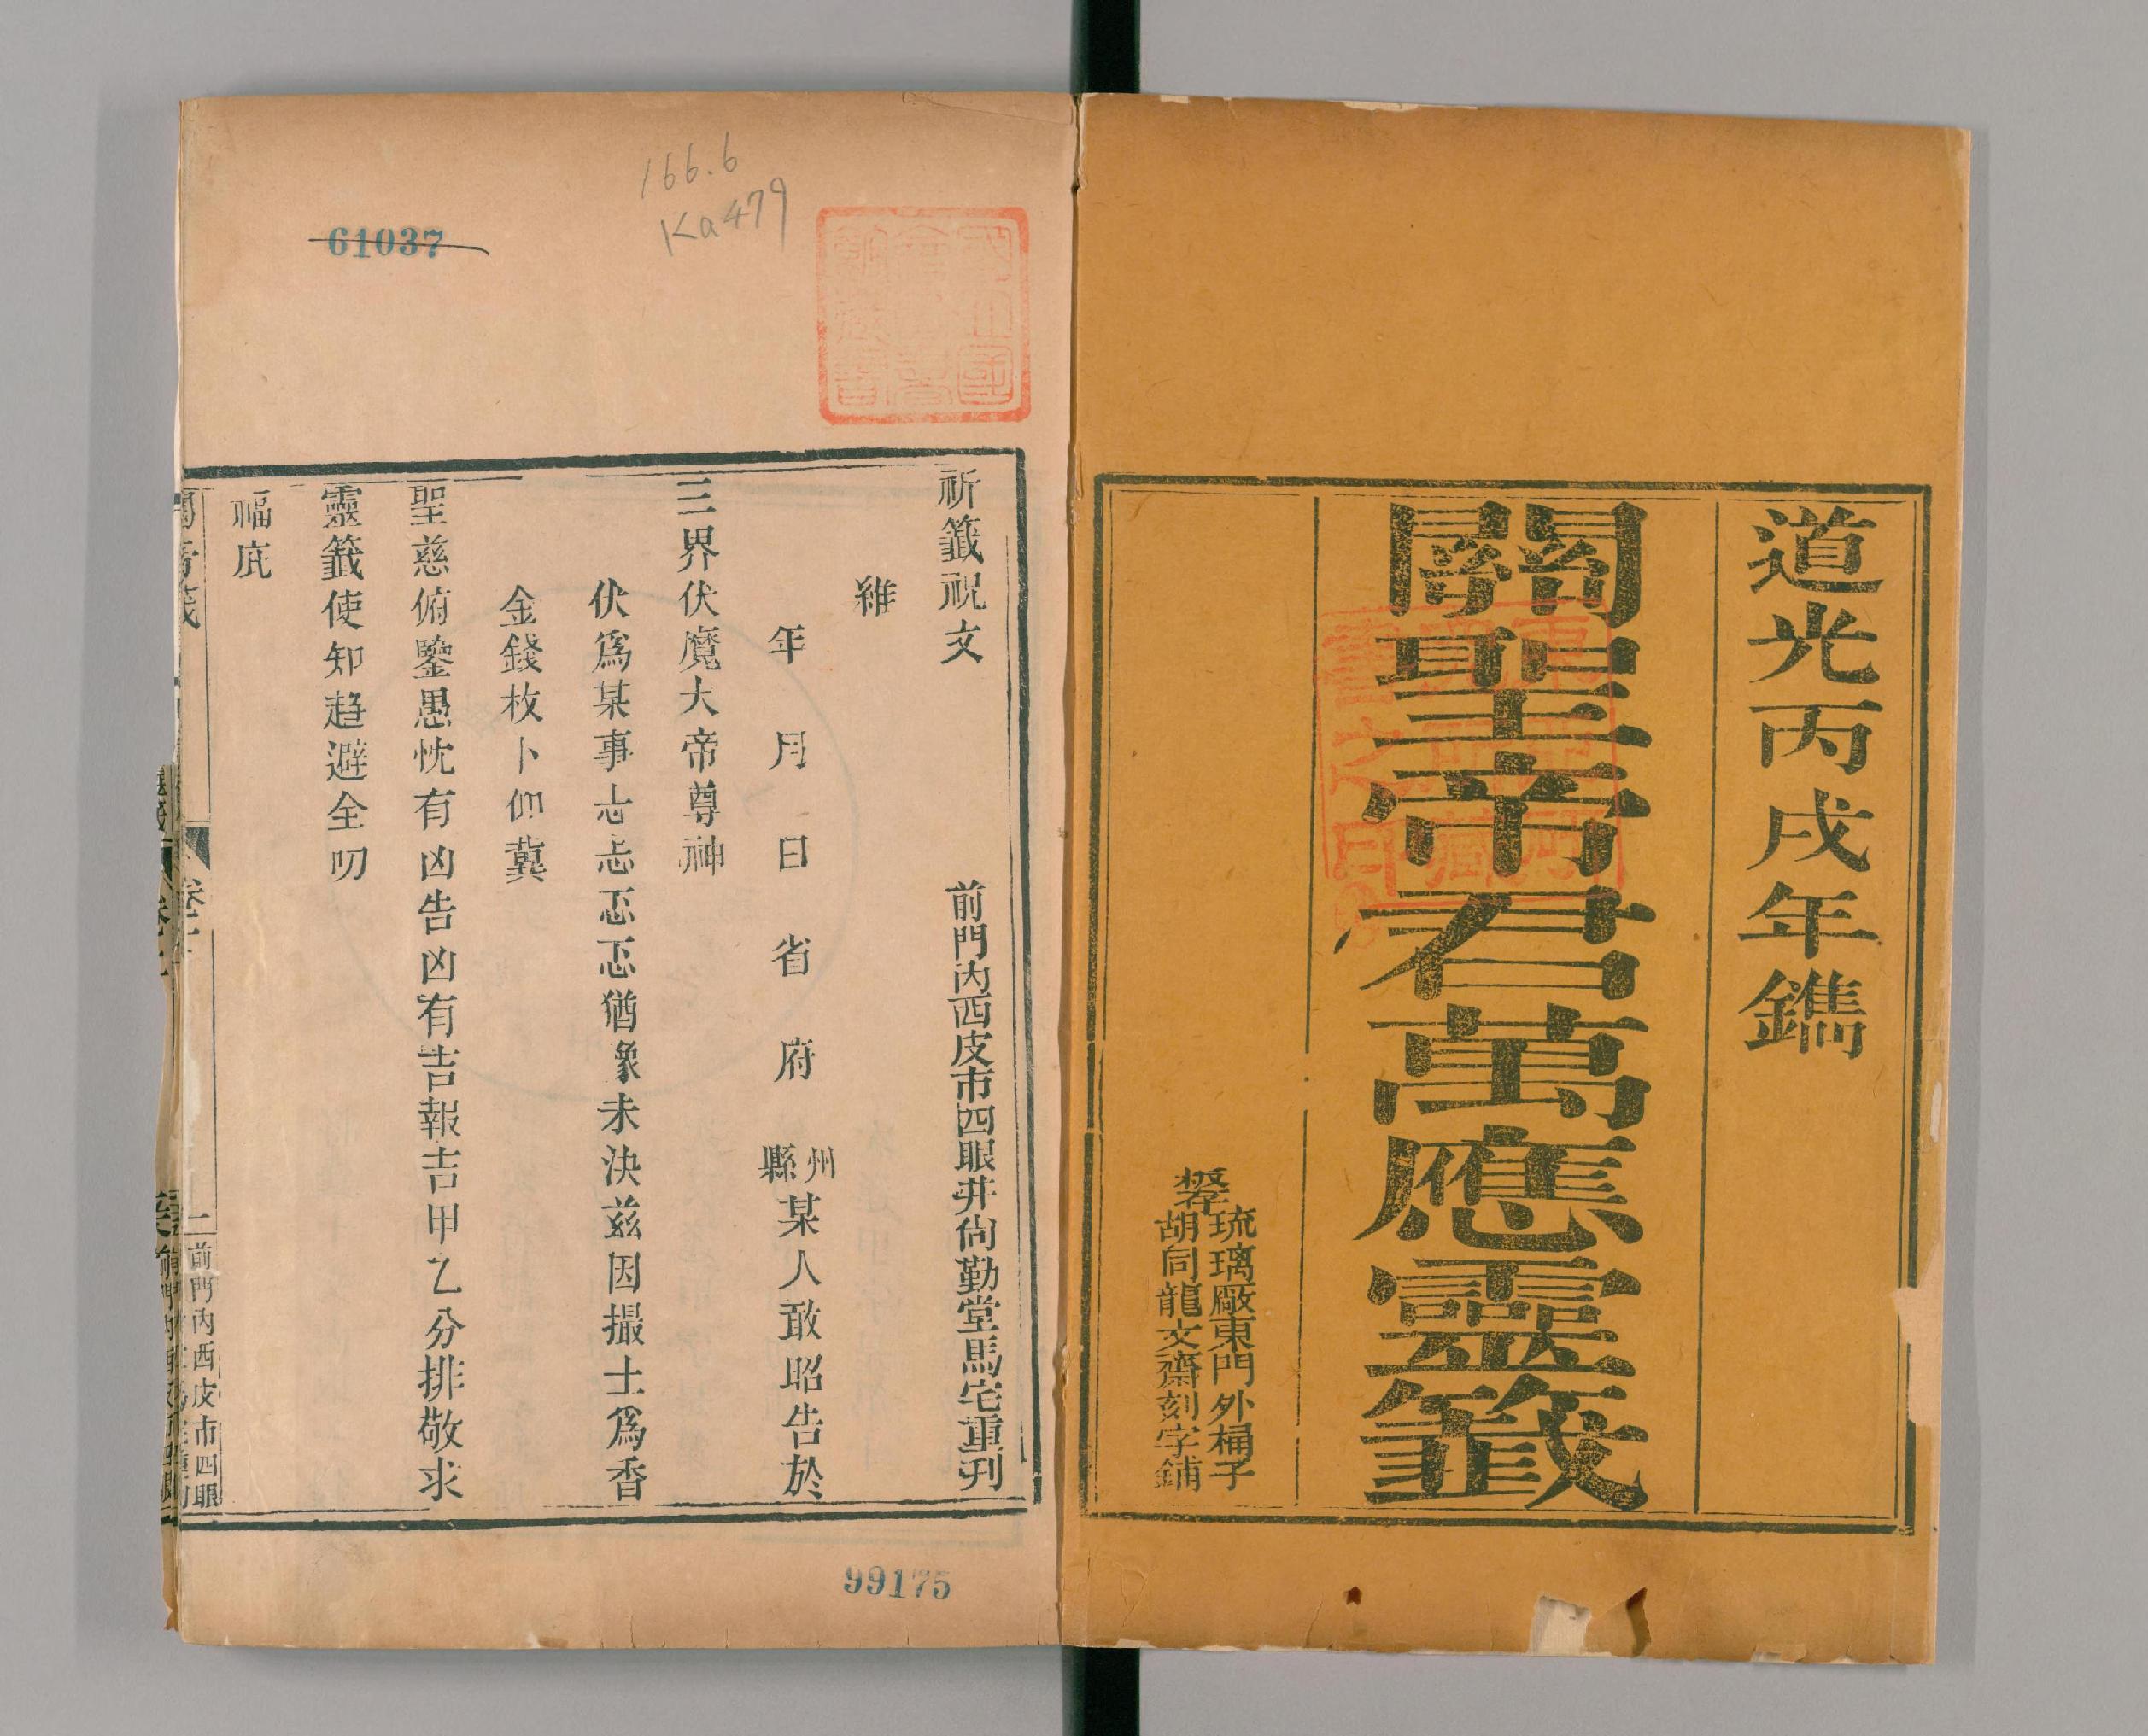 道光丙戌年鐫
關聖帝君萬應靈籤
琉璃廠東門外桶子
胡同龍文齋刻字鋪
166.6
Ka479
61037
祈籤祝文
前門內西皮市四眼井尙勤堂馬宅重刋
維
年月日省府州縣某人敢昭告於
三界伏魔大帝尊神
伏爲某事忐忑忑忑猶豫未決兹因撮土爲香
金錢枚卜仰冀
聖慈俯鑒愚忱有凶告凶有吉報吉甲乙分排敬求
靈籤使知趋避全叨
福庇
前門內西皮市四眼
99175